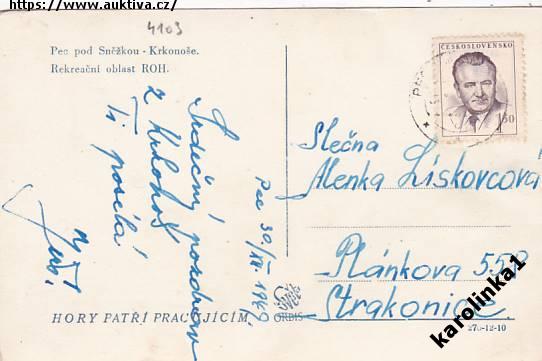 https://www.auktiva.cz/
4109
Pec pod Sněžkou - Krkonoše.
Rekreační oblast ROH.
ČESKOSLOVENSKO
1,50
Srdečný pozdrav
z Krkonoš
Ti posélá
Pec 30/XII. 1949.
Slečna
Alenka Liskovcová
Plánkova 558
Strakonice
HORY PATŘÍ PRACUJÍCÍM
ORBIS
karolinka1